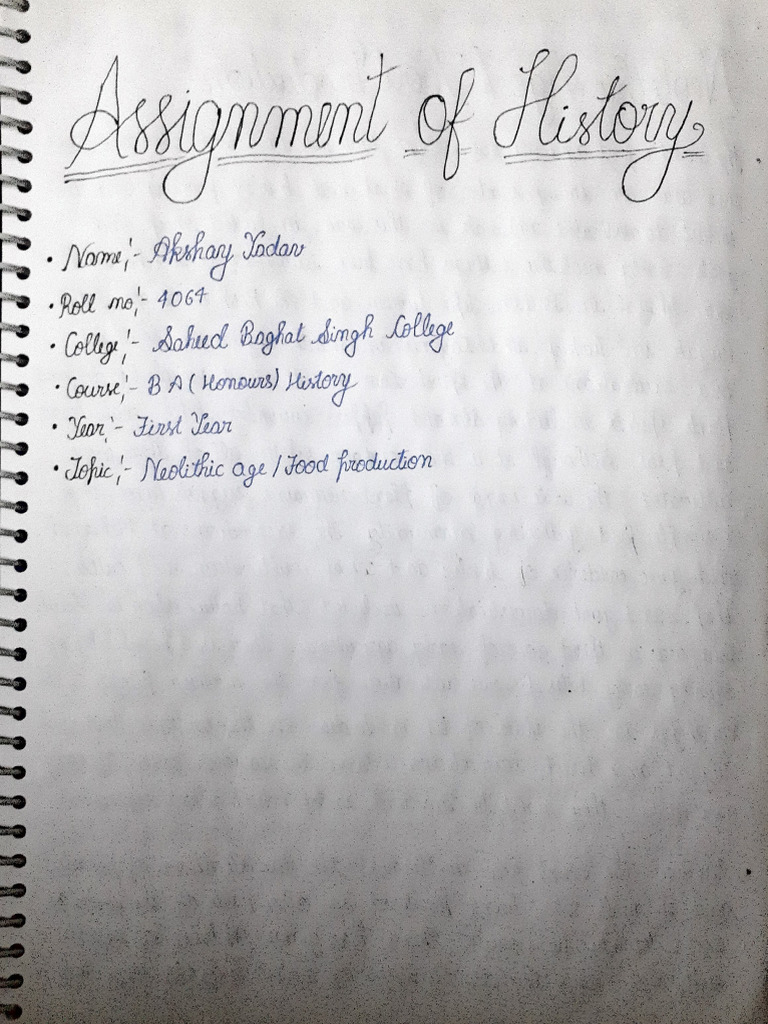 Assignment of History
• Name:- Akshay Yadav
• Roll no:- 4064
• College:- Saheed Baghat Singh College
• Course:- B A (Honours) History
• Year:- First Year
• Topic:- Neolithic age / Food production